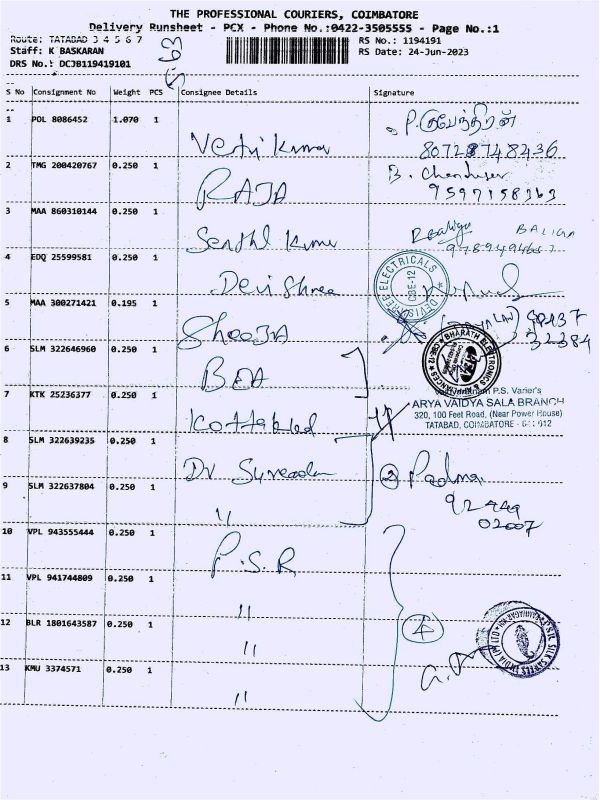 THE PROFESSIONAL COURIERS, COIMBATORE
Delivery Runsheet - PCX - Phone No.:0422-3505555 - Page No.:1
Route: TATABAD 3 4 5 6 7
RS No.: 1194191
Staff: K BASKARAN
RS Date: 24-Jun-2023
DRS No.: DCJB119419101
S No Consignment No Weight PCS Consignee Details Signature
1 POL 8086452 1.070 1 Vetri Kumar
2 TMG 200420767 0.250 1 RAJA B.
9597158363
3 MAA 860310144 0.250 1 Senthil Kumar BALIGA
4 EDQ 25599581 0.250 1 Devi Shree
DEVISHREE ELECTRICALS
CBE-12
5 MAA 300271421 0.195 1 SheeJA
90137
32384
6 SLM 322646960 0.250 1
BHARATH ELECTRONICS
7 KTK 25236377 0.250 1
P.S. Varier's
ARYA VAIDYA SALA BRANCH
320, 100 Feet Road, (Near Power House)
TATABAD, COIMBATORE - 641 012
8 SLM 322639235 0.250 1 Dr
9 SLM 322637804 0.250 1 " 2 Padma
92449
02007
10 VPL 943555444 0.250 1 P.S.R
11 VPL 941744809 0.250 1 "
12 BLR 1801643587 0.250 1 " 4
PSR SILK SAREES INDIA (P) LTD
13 KMU 3374571 0.250 1 "